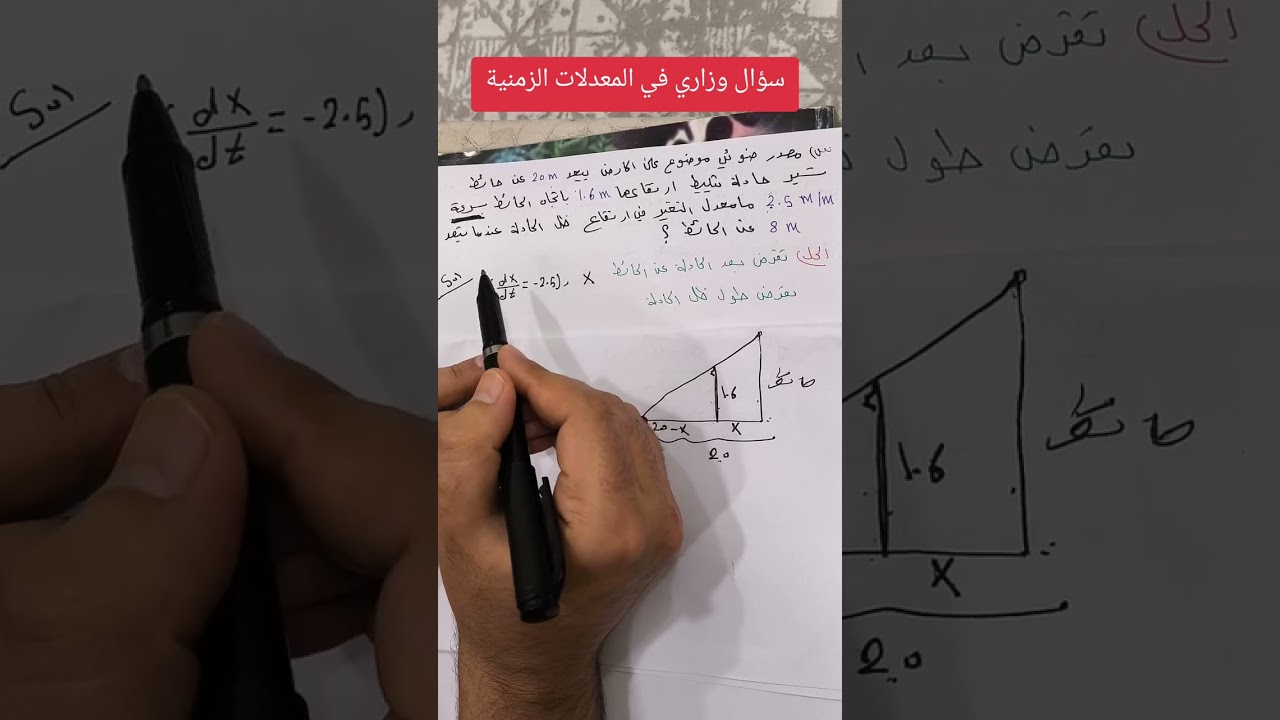 سؤال وزاري في المعدلات الزمنية
س/ مصدر ضوئي موضوع على الارض يبعد 20 m عن حائط
تسير حادلة تبليط ارتفاعها 1.6 m باتجاه الحائط بسرعة
2.5 m/m مامعدل التغير في ارتفاع ظل الحادلة عندما تبعد
8 m عن الحائط ؟
الحل/ نفرض بعد الحادلة عن الحائط X
نفرض طول ظل الحادلة
Sol/ dx/dt = -2.5),
1.6
حائط
20-X
X
20
الحل/ تفرض بعد ا
نفرض طول
Sol/ dX/dt = -2.5),
1.6
حائط
X
20